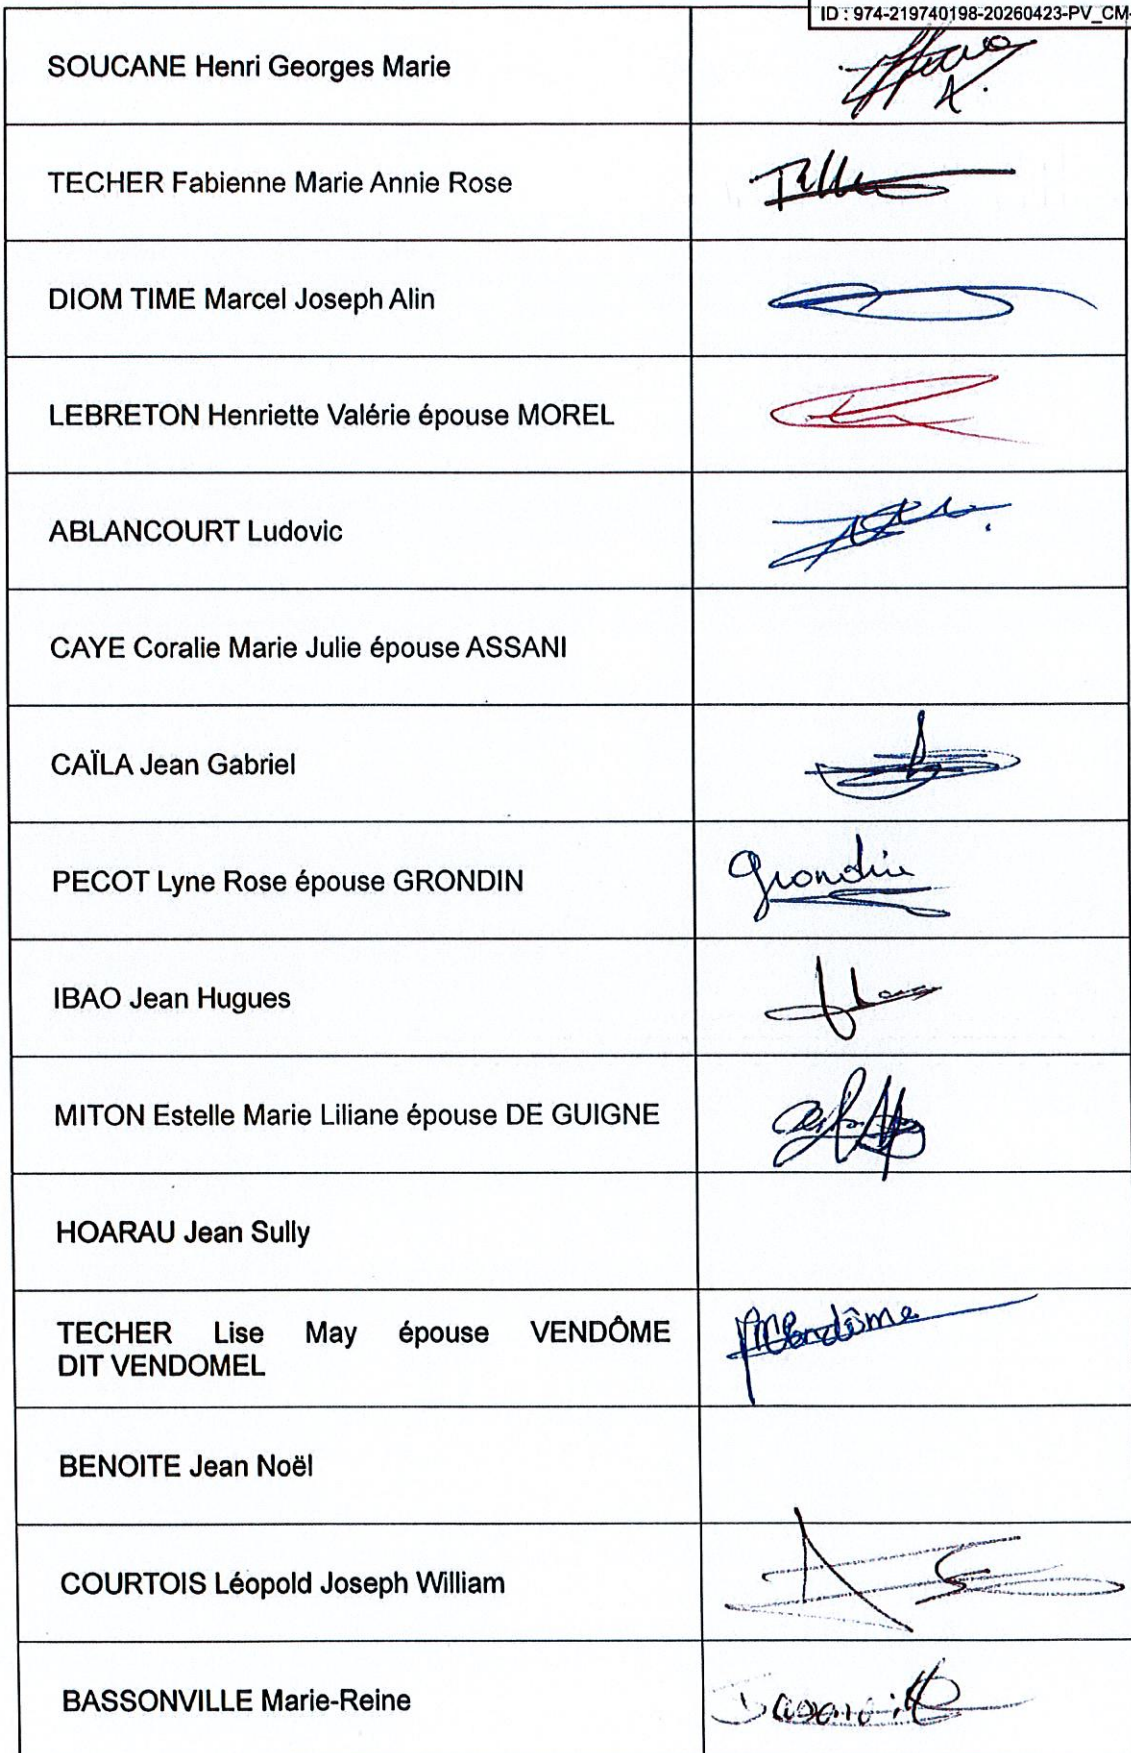 ID : 974-219740198-20260423-PV_CM-
SOUCANE Henri Georges Marie
TECHER Fabienne Marie Annie Rose
DIOM TIME Marcel Joseph Alin
LEBRETON Henriette Valérie épouse MOREL
ABLANCOURT Ludovic
CAYE Coralie Marie Julie épouse ASSANI
CAÏLA Jean Gabriel
PECOT Lyne Rose épouse GRONDIN
Grondin
IBAO Jean Hugues
MITON Estelle Marie Liliane épouse DE GUIGNE
HOARAU Jean Sully
TECHER Lise May épouse VENDÔME
DIT VENDOMEL
Vendôme
BENOITE Jean Noël
COURTOIS Léopold Joseph William
BASSONVILLE Marie-Reine